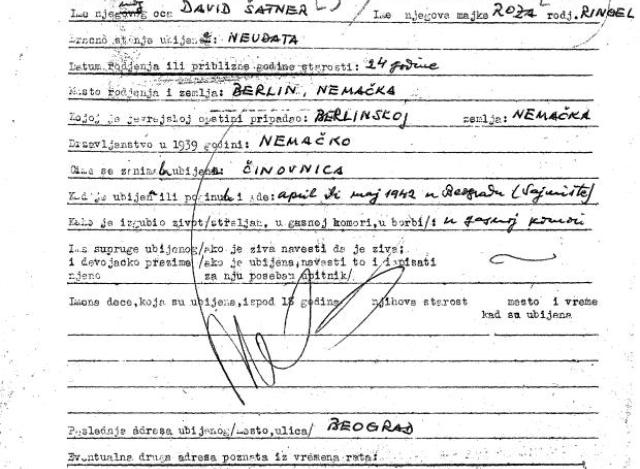 Ime njegovog oca DAVID ŠATNER Ime njegova majke ROZA rodj. RINGEL
Bračno stanje ubijen: NEUDATA
Datum rodjenja ili približne godine starosti: 24 godine
Mesto rodjenja i zemlja: BERLIN, NEMAČKA
Kojoj je jevrejskoj opštini pripadao: BERLINSKOJ zemlja: NEMAČKA
Državljanstvo u 1939 godini: NEMAČKO
Čime se zanima ubijen: ČINOVNICA
Kad je ubijen ili poginu i gde: april ili maj 1942 u Beogradu (Sajmište)
Kako je izgubio život/streljan, u gasnoj komori, u borbi/: u gasnoj komori
Ime supruge ubijenog/ako je živa navesti da je živa;
i devojačko prezime /ako je ubijena, navesti to i ispisati
njeno za nju poseban upitnik/
Imena dece, koja su ubijena, ispod 18 godina njihova starost mesto i vreme
kad su ubijena
Poslednja adresa ubijenog/mesto, ulica/ BEOGRAD
Eventualna druga adresa poznata iz vremena rata: